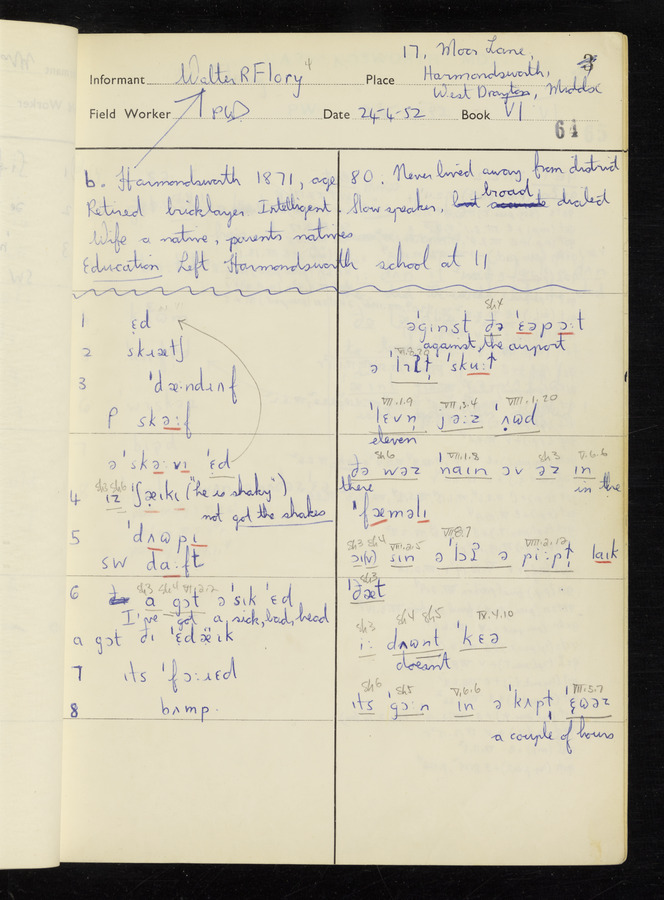 17, Moor Lane,
Informant Walter R Flory Place Harmondsworth,
West Drayton, Middx
Field Worker PWD Date 24-4-52 Book VI
64
b. Harmondsworth 1871, age 80. Never lived away from district
Retired bricklayer Intelligent. Slow speaker, broad dialect
Wife a native, parents natives
Education Left Harmondsworth school at 11
1 ɛd
2 skɹætʃ
3 ˈdæːndɹʌf
P skəːf
əˈskəːvɪ ˈɛd
4 ɪz ˈʃæɪkɪ ("he is shaky")
not got the shakes
5 ˈdɹʌɷpɪ
SW daːft
6 a gɔt əˈsɪk ˈɛd
I've got a sick, bad, head
a gɔt ðɪ ˈɛdæɪk
7 ɪts ˈfɔːɹɛd
8 bʌmp.
Sh4
əˈgɪnst ðə ˈɛəpɔːt
against the airport
əˈlɪʔtˈskuːt
VIII.1.9 VII.5.4 VIII.1.20
ˈlɛvn̩ jəːz ˈʌɷd
eleven
Sh6 VII.1.8 Sh3 V.6.6
ðə wəz naɪn ɔv əz ɪn
there in the
ˈfæməlɪ
Sh3 Sh4 VIII.2.5 VII.8.7 VIII.2.12
ɔɪ(v) sɪn əˈlɔʔ ə piːpt laɪk
Sh3
ˈðæt
Sh3 Sh4 Sh5 IV.4.10
iː dʌɷnt ˈkɛə
doesn't
Sh6 Sh5 V.6.6 VII.3.7
ɪts gɔːn ɪn əˈkʌpt ˈɛɷəz
a couple of hours